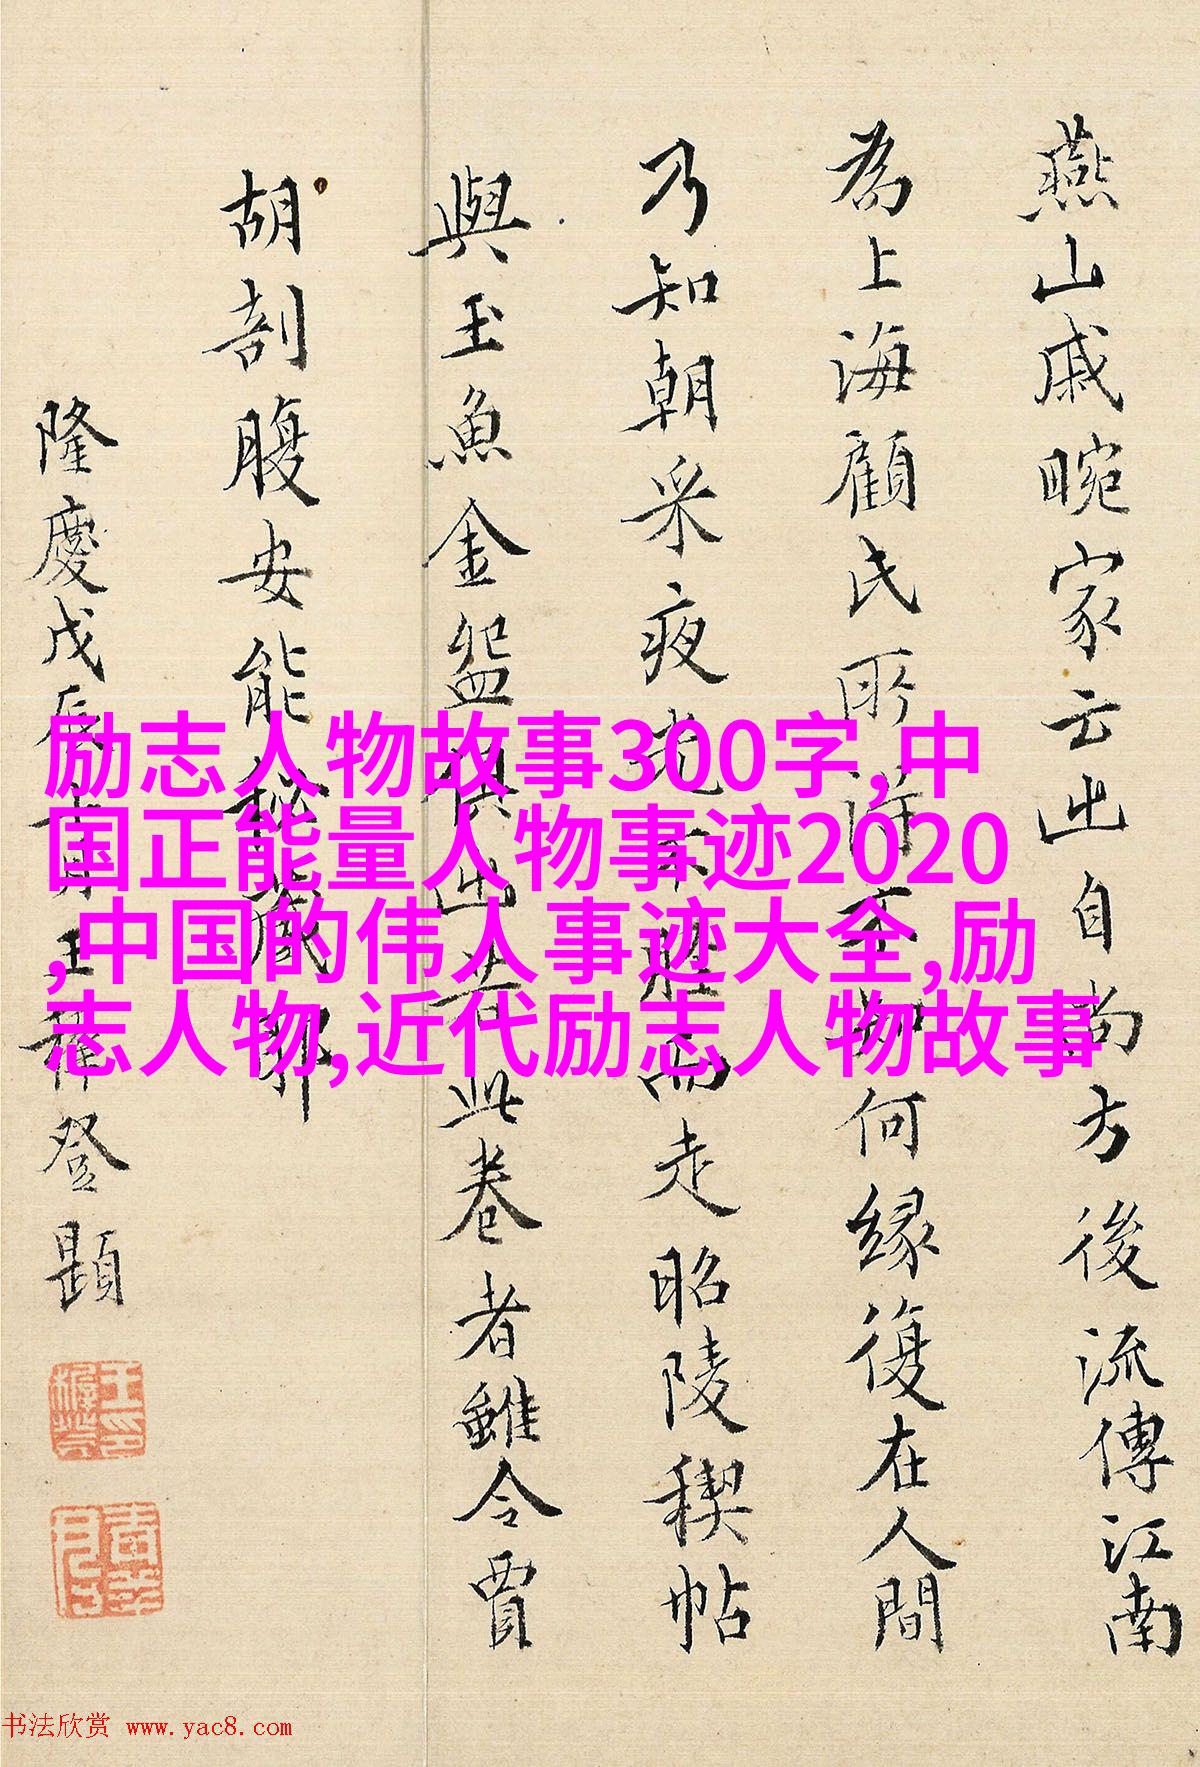 燕山戚畹家云出自尚方後流傳江南
為上海顧氏所得不知何緣復在人間
乃知朝采夜光不脛而走昭陵稧帖
與玉魚金盌俱出昔此卷者雖令賈
胡剖腹安能秘藏耶
隆慶戊辰七月王穉登題
励志人物故事300字,中
国正能量人物事迹2020
,中国的伟人事迹大全,励
志人物,近代励志人物故事
书法欣赏 www.yac8.com